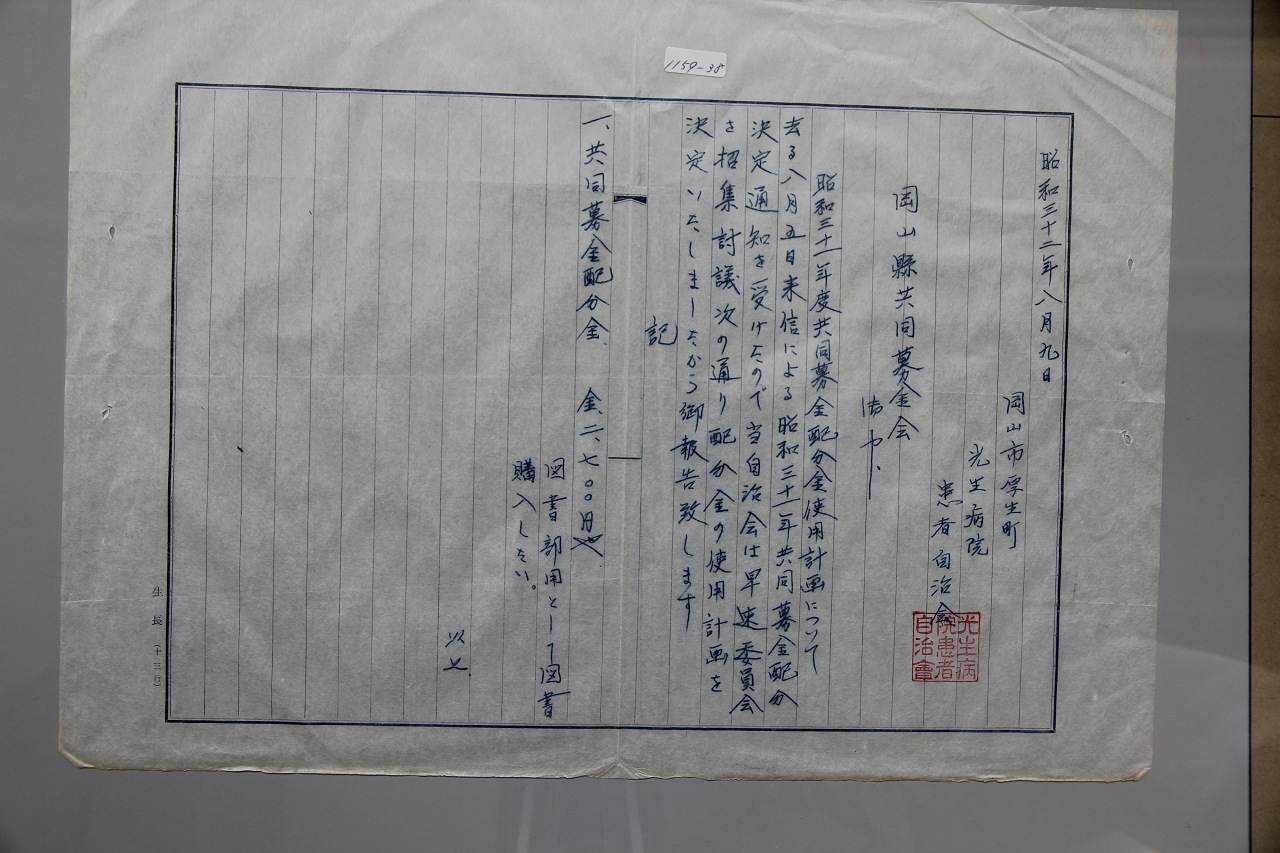 1159-38
昭和三十二年八月九日
岡山市厚生町
光生病院
患者自治会
光生病院患者自治會
岡山縣共同募金会
御中、
昭和三十一年度共同募金配分金使用計画について
去る八月五日来信による昭和三十一年共同募金配分
決定通知を受けたので当自治会は早速委員会
を招集討議次の通り配分金の使用計画を
決定いたしましたから御報告致します
記
一、共同募金配分金、 金、二、七〇〇円也
図書部用として図書
購入したい。
以上、
生長(十三行)